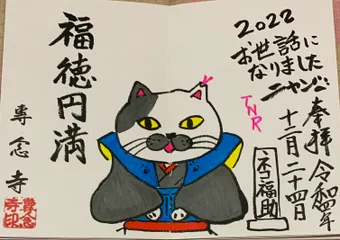 2022
お世話に
なりました
ニャンこ
奉拝
令和四年
十二月二十四日
TNR
ネコ福助
福徳円満
専念寺
専念
寺印